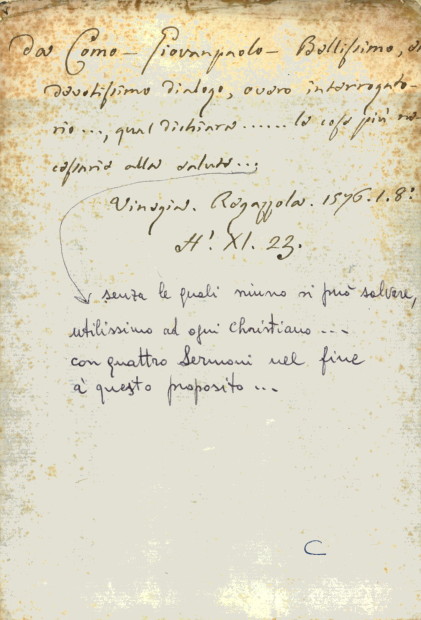 da Como – Giovanpaolo – Bellissimo, et
devotissimo dialogo, overo interrogato-
rio ..., qual dichiara ...... le cose più ne-
cessarie alla salute ...
Vinegia. Regazzola. 1576. 1. 8.º
H.¹ XI. 23.
senza le quali niuno si può salvare,
utilissimo ad ogni Christiano ...
con quattro Sermoni nel fine
a questo proposito ...
C